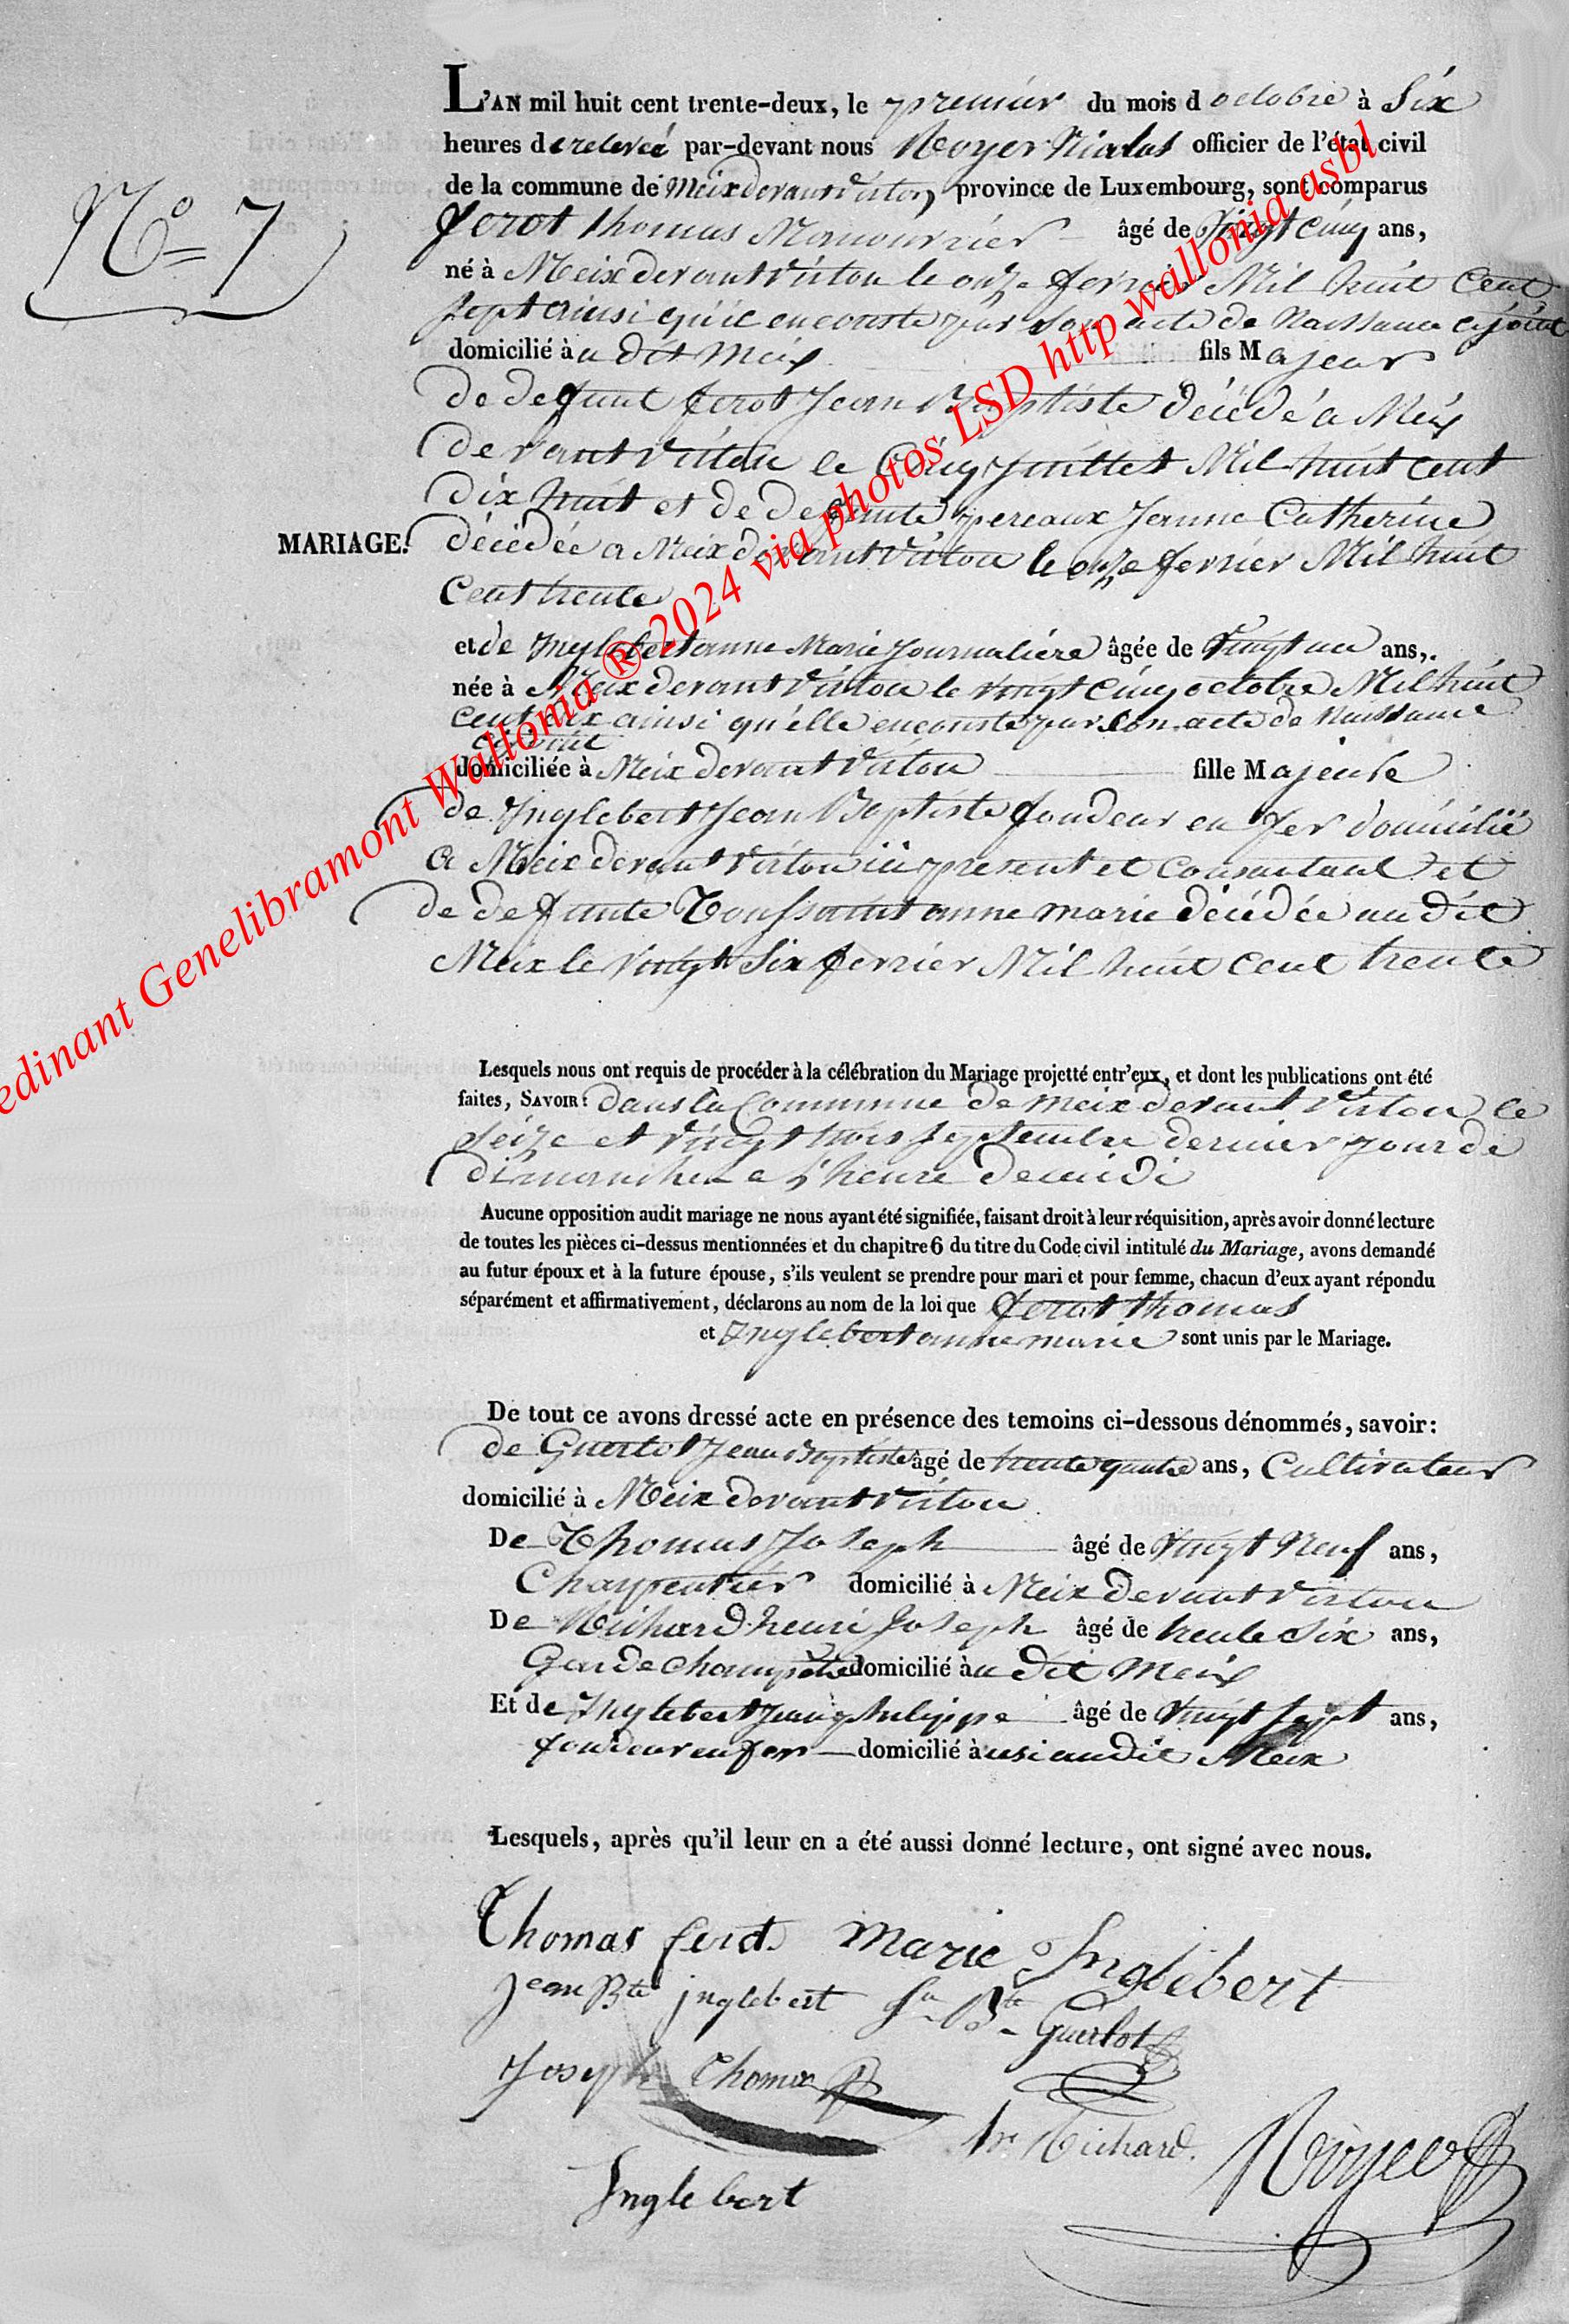 L'AN mil huit cent trente-deux, le premier du mois d octobre à Six
heures de relevée par-devant nous Royer Nicolas officier de l'état civil
de la commune de Meix devant virton province de Luxembourg, sont comparus
N.º 7
ferot thomas Manouvrier âgé de Vingt Cinq ans,
né à Meix devant virton le onze fevrier Mil huit Cent
sept ainsi qu'il en conste par son acte de Naissance cijoint
domicilié à u dit Meix fils Majeur
de defunt ferot Jean Baptiste décédé a Meix
devant virton le Cinq Juillet Mil huit cent
dix huit et de defunte pereaux Jeanne Catherine
MARIAGE.
décédée a Meix devant virton le onze fevrier Mil huit
Cent trente
et de Inglebert anne Marie Journalière âgée de Vingt un ans,
née à Meix devant virton le vingt Cinq octobre Mil huit
cent dix ainsi qu'elle en conste par son acte de Naissance
cijoint
domiciliée à Meix devant virton fille Majeure
de Inglebert Jean Baptiste fondeur en fer domicilié
a Meix devant virton ici present et Consentant et
de defunte Toussaint anne marie décédée au dit
Meix le vingt Six fevrier Mil huit cent trente
Lesquels nous ont requis de procéder à la célébration du Mariage projetté entr'eux, et dont les publications ont été
faites, SAVOIR: dans la Commune de Meix devant Virton le
Seize et vingt trois septembre dernier jour de
dimanche a l'heure de midi
Aucune opposition audit mariage ne nous ayant été signifiée, faisant droit à leur réquisition, après avoir donné lecture
de toutes les pièces ci-dessus mentionnées et du chapitre 6 du titre du Code civil intitulé du Mariage, avons demandé
au futur époux et à la future épouse, s'ils veulent se prendre pour mari et pour femme, chacun d'eux ayant répondu
séparément et affirmativement, déclarons au nom de la loi que ferot thomas
et Inglebert anne marie sont unis par le Mariage.
De tout ce avons dressé acte en présence des temoins ci-dessous dénommés, savoir:
de Guerlot Jean Baptiste âgé de trente quatre ans, Cultivateur
domicilié à Meix devant virton
De Thomas Joseph âgé de Vingt Neuf ans,
Charpentier domicilié à Meix devant virton
De Richard henri Joseph âgé de trente Six ans,
Garde Champêtre domicilié à u dit Meix
Et de Inglebert Jean philippe âgé de Vingt Sept ans,
fondeur en fer domicilié à usi au dit Meix
Lesquels, après qu'il leur en a été aussi donné lecture, ont signé avec nous.
Thomas ferot Marie Inglebert
Jean Bte inglebert Jn Bte Guerlot
Joseph Thomas
hri Richard. Royer
Inglebert
edinant Genelibramont Wallonia ® 2024 via photos LSD http wallonia asbl